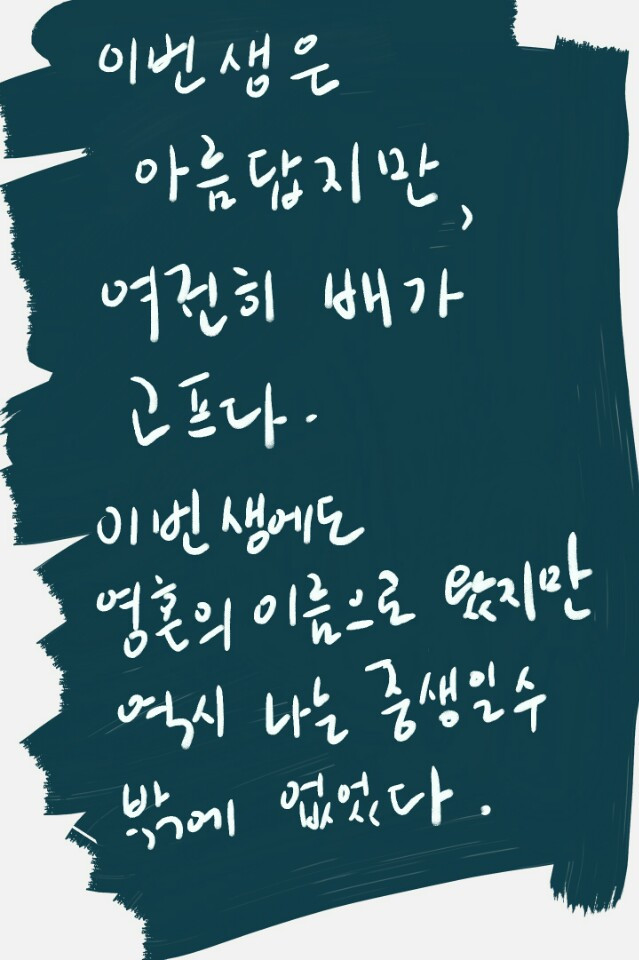 이번 생은
아름답지만,
여전히 배가
고프다.
이번 생에도
영혼의 이름으로 왔지만
역시 나는 중생일 수
밖에 없었다.